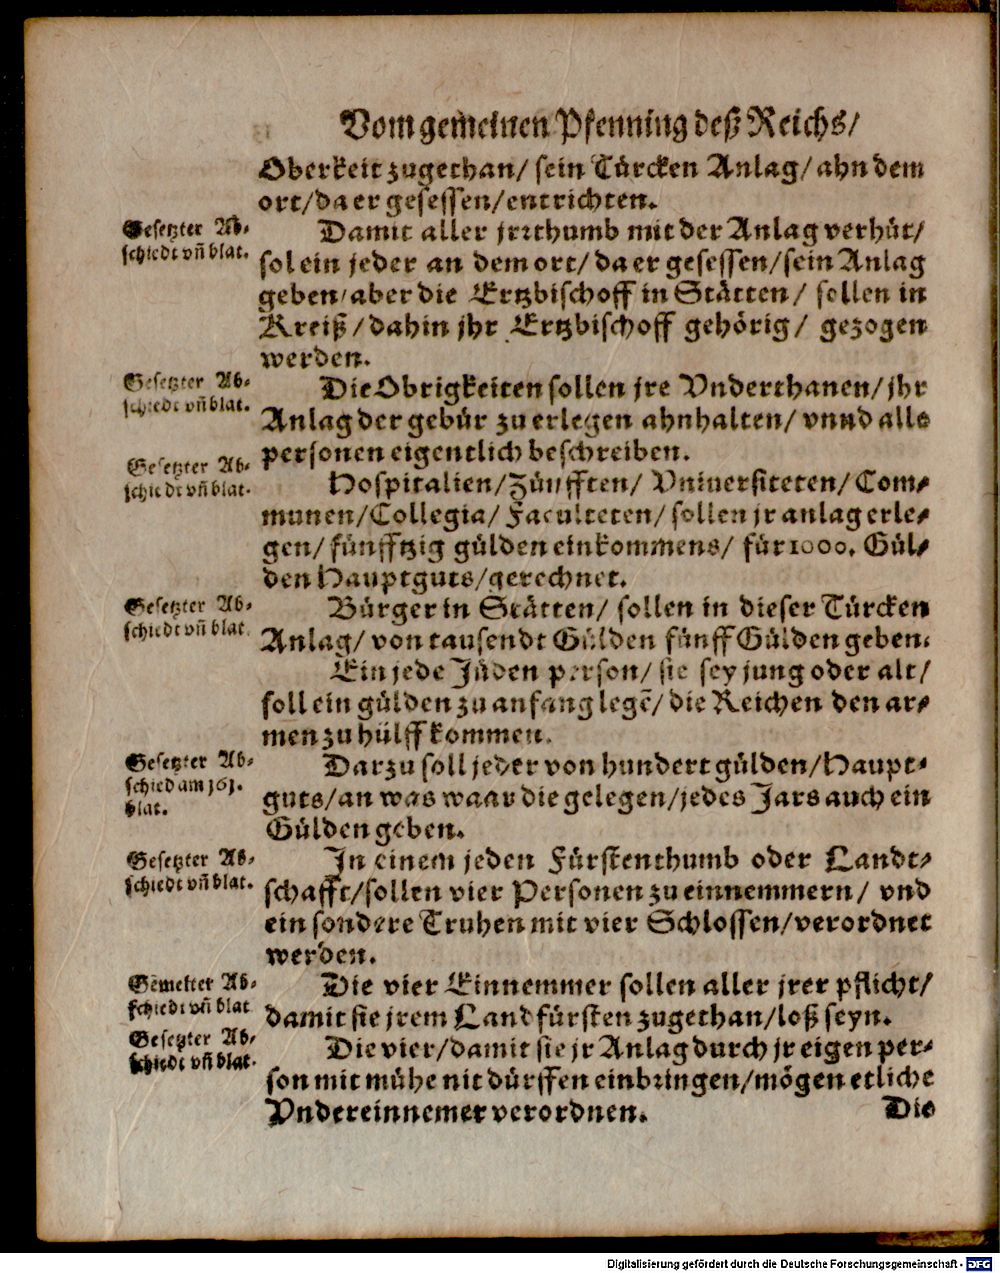 Vom gemeinen Pfenning deß Reichs/
Oberkeit zugethan/ sein Türcken Anlag/ ahn dem
ort/ da er gesessen/ entrichten.
Gesetzter Ab-
schiedt vñ blat.
Damit aller jrrthumb mit der Anlag verhüt/
sol ein jeder an dem ort/ da er gesessen/ sein Anlag
geben/ aber die Ertzbischoff in Stätten/ sollen in
Kreiß/ dahin jhr Ertzbischoff gehörig/ gezogen
werden.
Gesetzter Ab-
schiedt vñ blat.
Die Obrigkeiten sollen jre Vnderthanen/ jhr
Anlag der gebür zu erlegen ahnhalten/ vnnd alle
personen eigentlich beschreiben.
Gesetzter Ab-
schiedt vñ blat.
Hospitalien/ Zünfften/ Vniuersiteten/ Com-
munen/ Collegia/ Faculteten/ sollen jr anlag erle-
gen/ fünfftzig gülden einkommens/ für 1000. Gül-
den Hauptguts/ gerechnet.
Gesetzter Ab-
schiedt vñ blat.
Bürger in Stätten/ sollen in dieser Türcken
Anlag/ von tausendt Gülden fünff Gülden geben.
Ein jede Jüden person/ sie sey jung oder alt/
soll ein gülden zu anfang legẽ/ die Reichen den ar-
men zu hülff kommen.
Gesetzter Ab-
schied am 161.
blat.
Darzu soll jeder von hundert gülden/ Haupt-
guts/ an was waar die gelegen/ jedes Jars auch ein
Gülden geben.
Gesetzter Ab-
schiedt vñ blat.
In einem jeden Fürstenthumb oder Landt-
schafft/ sollen vier Personen zu einnemmern/ vnd
ein sondere Truhen mit vier Schlossen/ verordnet
werden.
Gemelter Ab-
schiedt vñ blat
Die vier Einnemmer sollen aller jrer pflicht/
damit sie jrem Landfürsten zugethan/ loß seyn.
Gesetzter Ab-
schiedt vñ blat.
Die vier/ damit sie jr Anlag durch jr eigen per-
son mit mühe nit dürffen einbringen/ mögen etliche
Vndereinnemer verordnen.
Die
Digitalisierung gefördert durch die Deutsche Forschungsgemeinschaft - DFG